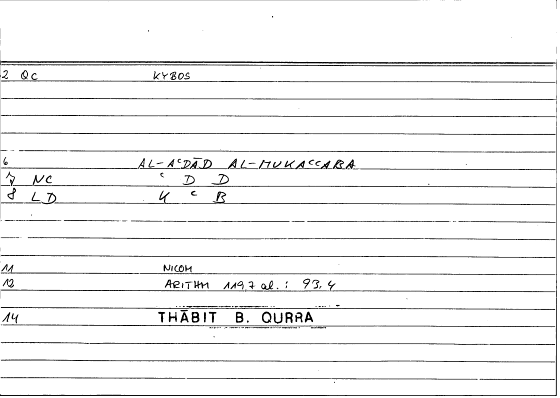 2 QC KYBOS
6 AL-AᶜDĀD AL-MUKAᶜᶜABA
7 NC ᶜ D D
8 LD K ᶜ B
11 NICOM
12 ARITHM 119,7 al.: 93,4
14 THĀBIT B. QURRA